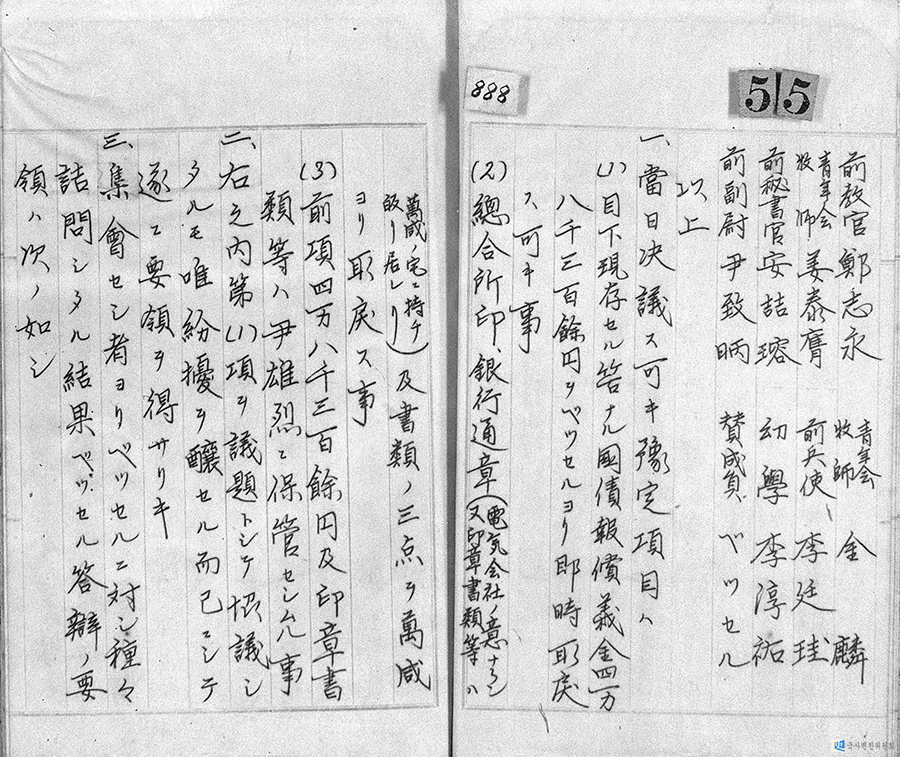 888
515
前教官 鄭志永 青年会牧師 金麟
青年会牧師 姜泰膺 前兵使 李廷珪
前秘書官 安喆瑢 幼學 李淳祐
前副尉 尹致昞 賛成員 ベツセル
以上
一、當日决議ス可キ豫定項目ハ
(1)目下現存セル筈ナル國債報償義金四万
八千三百餘円ヲベツセルヨリ即時取戻
ス可キ事
(2)總合所印、銀行通章(電気会社ノ意ナラン
又印章書類等ハ
萬咸ノ宅ニ持チ
歌り居レリ)及書類ノ三点ヲ萬咸
ヨリ取戻ス事
(3)前項四万八千三百餘円及印章書
類等ハ尹雄烈ニ保管セシム事
二、右之内第(1)項ヲ議題トシテ協議シ
タルモ唯紛擾ヲ釀セル而已ニシテ
遂ニ要領ヲ得サリキ
三、集會セシ者ヨリベツセルニ対シ種々
詰問シタル結果ベツセル答辯ノ要
領ハ次ノ如シ
국사편찬위원회